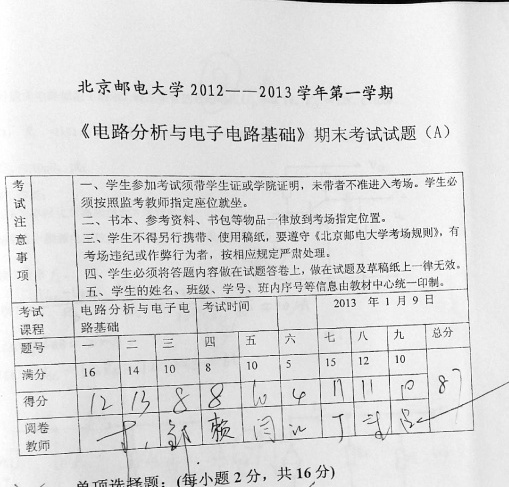 北京邮电大学 2012——2013 学年第一学期
《电路分析与电子电路基础》期末考试试题（A）
考试注意事项
一、学生参加考试须带学生证或学院证明，未带者不准进入考场。学生必
须按照监考教师指定座位就坐。
二、书本、参考资料、书包等物品一律放到考场指定位置。
三、学生不得另行携带、使用稿纸，要遵守《北京邮电大学考场规则》，有
考场违纪或作弊行为者，按相应规定严肃处理。
四、学生必须将答题内容做在试题答卷上，做在试题及草稿纸上一律无效。
五、学生的姓名、班级、学号、班内序号等信息由教材中心统一印制。
考试 电路分析与电子电 考试时间 2013 年 1 月 9 日
课程 路基础
题号 一 二 三 四 五 六 七 八 九 总分
满分 16 14 10 8 10 5 15 12 10
得分 12 13 8 8 10 4 11 11 10 87
阅卷
教师 赖 闫
单项选择题：(每小题 2 分，共 16 分)